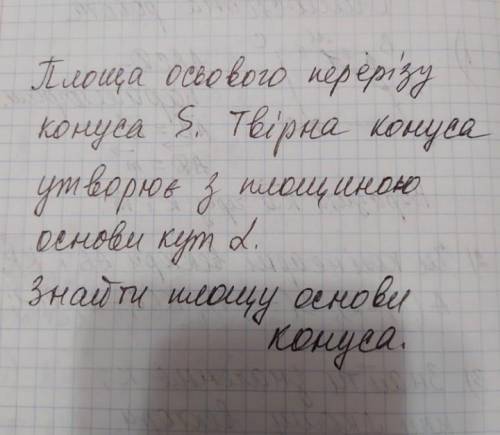 Площа осьового перерізу
конуса S. Твірна конуса
утворює з площиною
основи кут α.
Знайти площу основи
конуса.